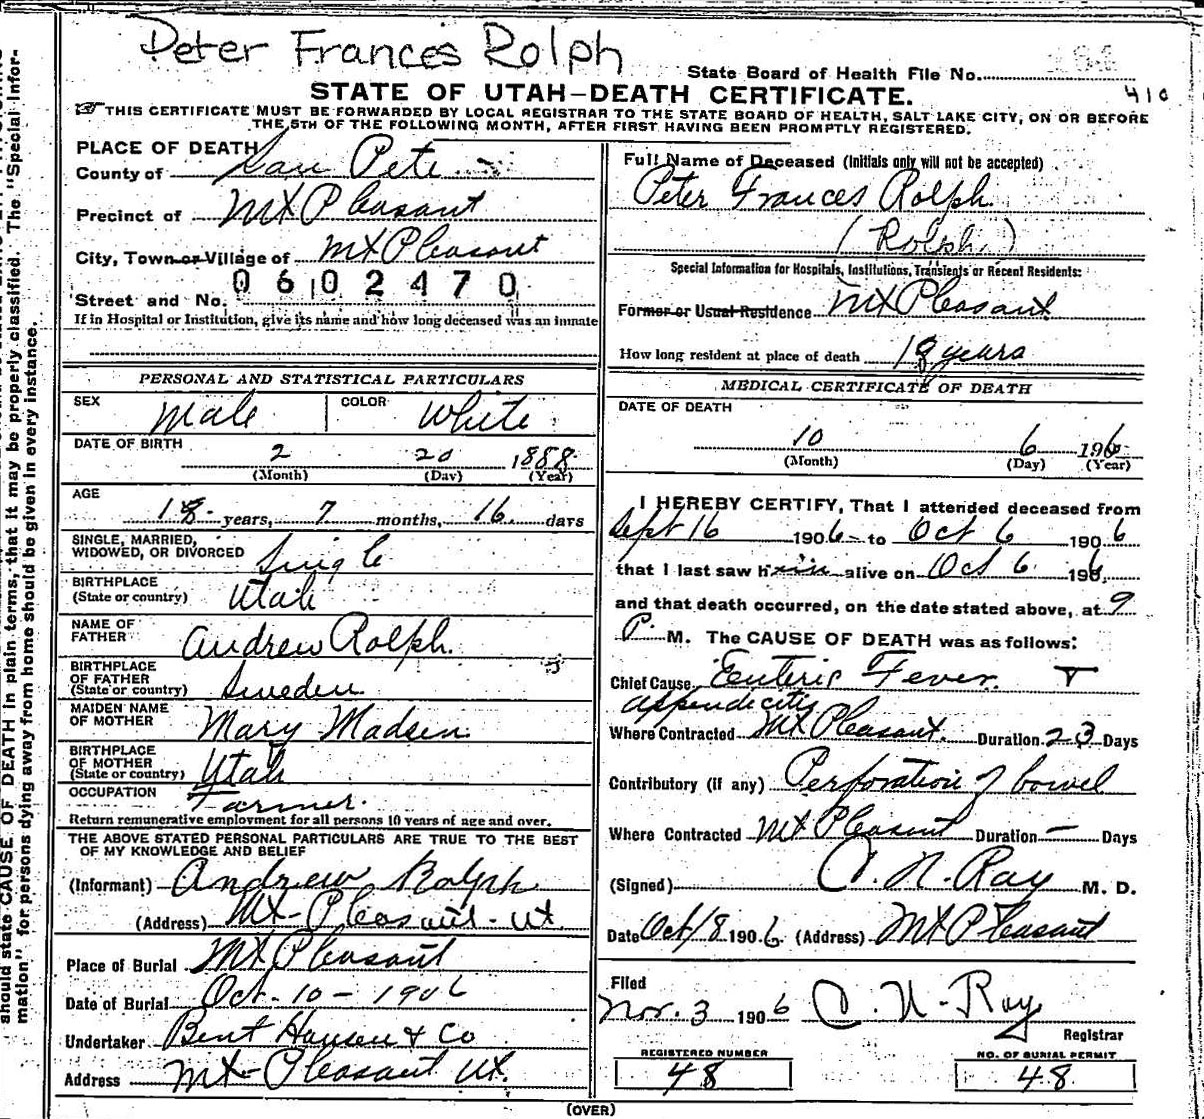 Peter Frances Rolph
State Board of Health File No.
410
STATE OF UTAH—DEATH CERTIFICATE.
THIS CERTIFICATE MUST BE FORWARDED BY LOCAL REGISTRAR TO THE STATE BOARD OF HEALTH, SALT LAKE CITY, ON OR BEFORE
THE 5TH OF THE FOLLOWING MONTH, AFTER FIRST HAVING BEEN PROMPTLY REGISTERED.
PLACE OF DEATH
County of San Pete
Precinct of Mt Pleasant
City, Town or Village of Mt Pleasant
0602470
Street and No.
If in Hospital or Institution, give its name and how long deceased was an inmate
PERSONAL AND STATISTICAL PARTICULARS
SEX Male COLOR White
DATE OF BIRTH
2 20 1888
(Month) (Day) (Year)
AGE
18 years, 7 months, 16 days
SINGLE, MARRIED,
WIDOWED, OR DIVORCED Single
BIRTHPLACE
(State or country) Utah
NAME OF
FATHER Andrew Rolph.
BIRTHPLACE
OF FATHER
(State or country) Sweden
MAIDEN NAME
OF MOTHER Mary Madsen
BIRTHPLACE
OF MOTHER
(State or country) Utah
OCCUPATION Farmer.
Return remunerative employment for all persons 10 years of age and over.
THE ABOVE STATED PERSONAL PARTICULARS ARE TRUE TO THE BEST
OF MY KNOWLEDGE AND BELIEF
(Informant) Andrew Rolph
(Address) Mt-Pleasant-Ut
Place of Burial Mt Pleasant
Date of Burial Oct-10-1906
Undertaker Bent Hansen & Co
Address Mt-Pleasant Ut.
Full Name of Deceased (Initials only will not be accepted)
Peter Frances Rolph
(Rolph)
Special Information for Hospitals, Institutions, Transients or Recent Residents:
Former or Usual Residence Mt Pleasant
How long resident at place of death 18 years
MEDICAL CERTIFICATE OF DEATH
DATE OF DEATH
10 6 1906
(Month) (Day) (Year)
I HEREBY CERTIFY, That I attended deceased from
Sept 16 1906 to Oct 6 1906
that I last saw him alive on Oct 6 1906
and that death occurred, on the date stated above, at 9
P. M. The CAUSE OF DEATH was as follows:
Chief Cause Enteric Fever. T
appendicitis
Where Contracted Mt Pleasant. Duration 23 Days
Contributory (if any) Perforation of bowel
Where Contracted Mt Pleasant Duration — Days
(Signed) C. N. Ray M. D.
Date Oct/8 1906 (Address) Mt Pleasant
Filed
Nov. 3 1906 C. N. Ray
Registrar
REGISTERED NUMBER
48
NO. OF BURIAL PERMIT
48
(OVER)
should state CAUSE OF DEATH in plain terms, that it may be properly classified. The "Special Infor-
mation" for persons dying away from home should be given in every instance.